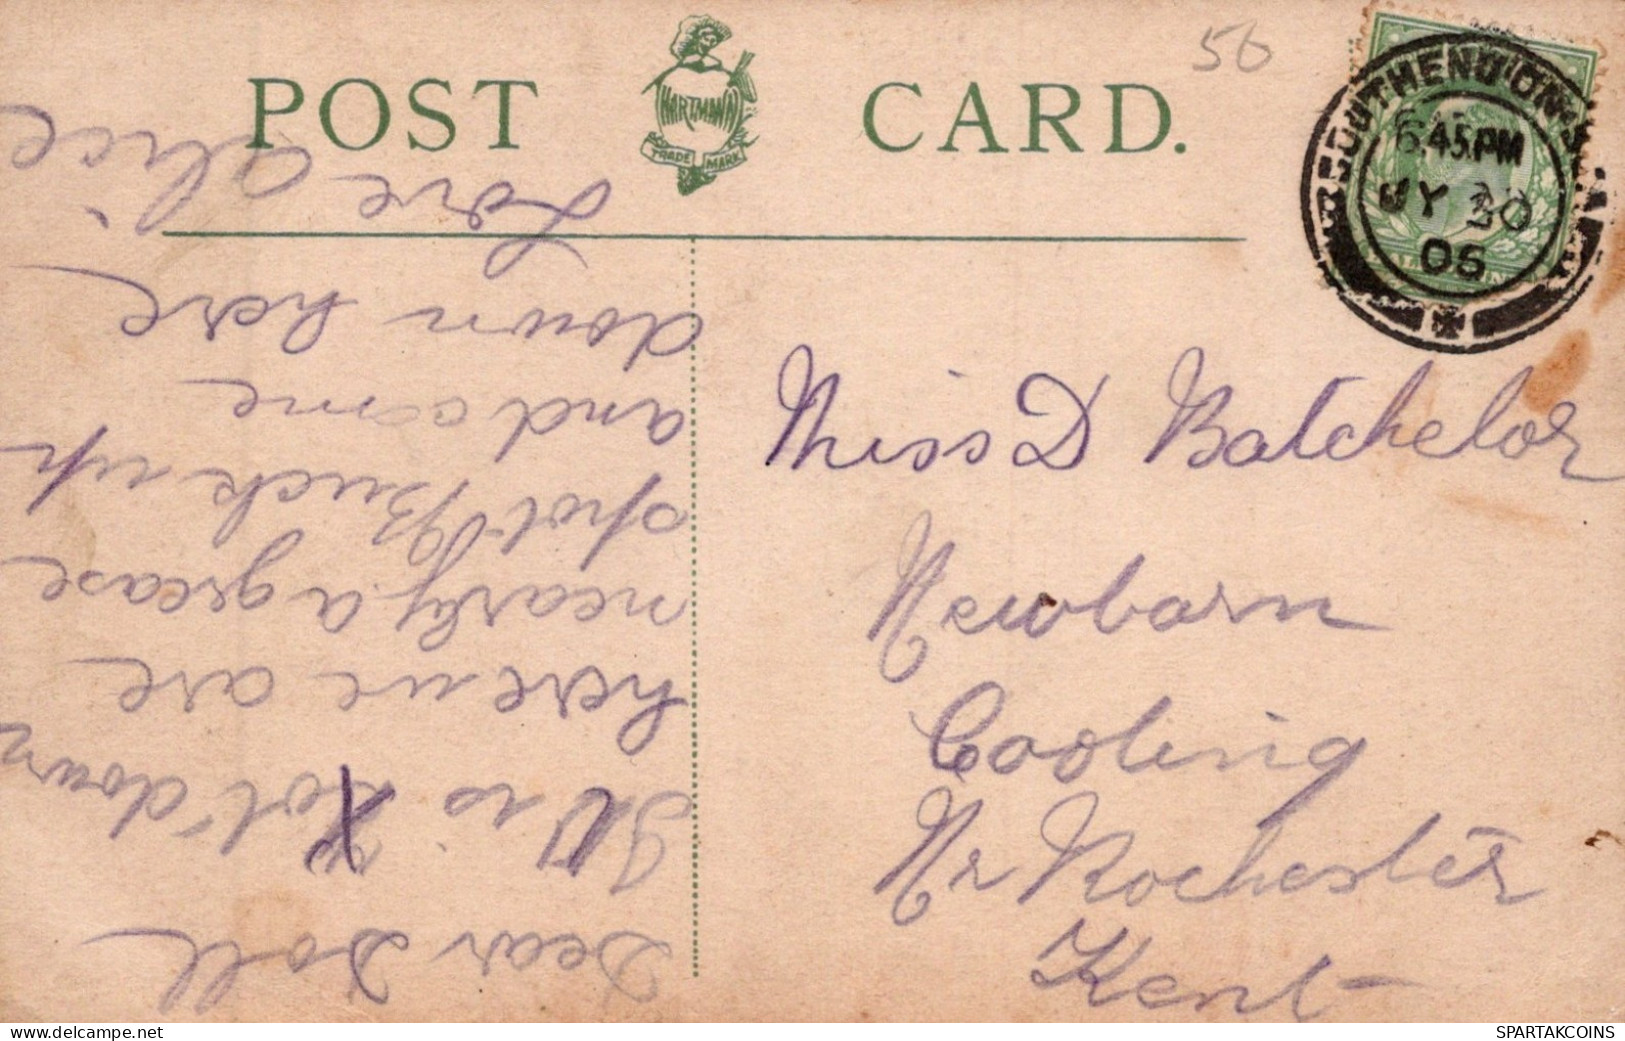 POST CARD.
HARTMANN
TRADE MARK
56
SOUTHEND-ON-SEA
6.45 PM
JY 30
06
Miss D Batchelor
Newbarn
Cooling
Nr Rochester
Kent
Dear Doll
It is hot down
here we are
nearly a grease
spot. Buck up
and come
down here
Love Alice
delcampe.net
SPARTAKCOINS